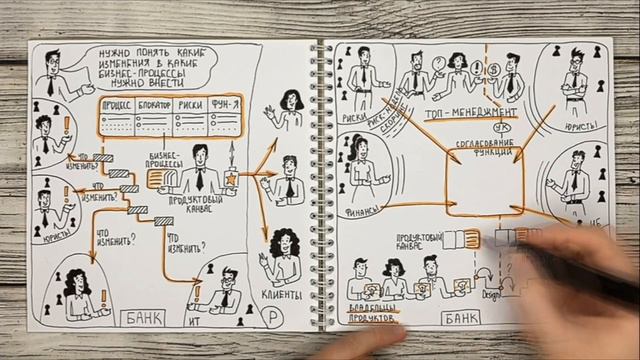 НУЖНО ПОНЯТЬ КАКИЕ
ИЗМЕНЕНИЯ В КАКИЕ
БИЗНЕС-ПРОЦЕССЫ
НУЖНО ВНЕСТИ
ПРОЦЕСС БЛОКАТОР РИСКИ ФУН-Я
БИЗНЕС-
ПРОЦЕССЫ
ПРОДУКТОВЫЙ
КАНВАС
ЧТО
ИЗМЕНИТЬ?
ЧТО
ИЗМЕНИТЬ?
ЮРИСТЫ
ЧТО
ИЗМЕНИТЬ?
ЧТО
ИЗМЕНИТЬ?
КЛИЕНТЫ
БАНК
ИТ
Р
РИСКИ
ТОП-МЕНЕДЖМЕНТ
УК
ЮРИСТЫ
СОГЛАСОВАНИЕ
ФУНКЦИЙ
ФИНАНСЫ
ИБ
ПРОДУКТОВЫЙ
КАНВАС
Design
ВЛАДЕЛЬЦЫ
ПРОДУКТОВ
БАНК